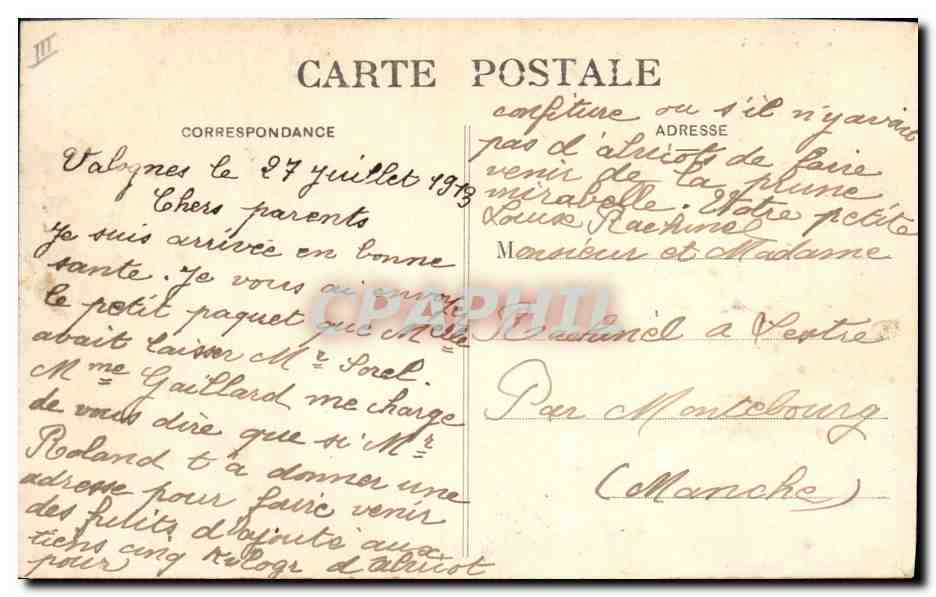 III
CARTE POSTALE
CORRESPONDANCE
Valognes le 27 juillet 1913
Chers parents
Je suis arrivée en bonne
sante. Je vous ai envoye
le petit paquet que Melle
avait laisser Mr Sorel.
Mme Gaillard me charge
de vous dire que si Mr
Roland t'a donner une
adresse pour faire venir
des fruits d'ajouté aux
tiens cinq kilogr d'abricot
pour
confiture ou s'il n'y avait
ADRESSE
pas d'abricots de faire
venir de la prune
mirabelle. Votre petite
Louise Rachinel
Monsieur et Madame
Rachinel a Lestre
Par Montebourg
(Manche)
CPAPHIL